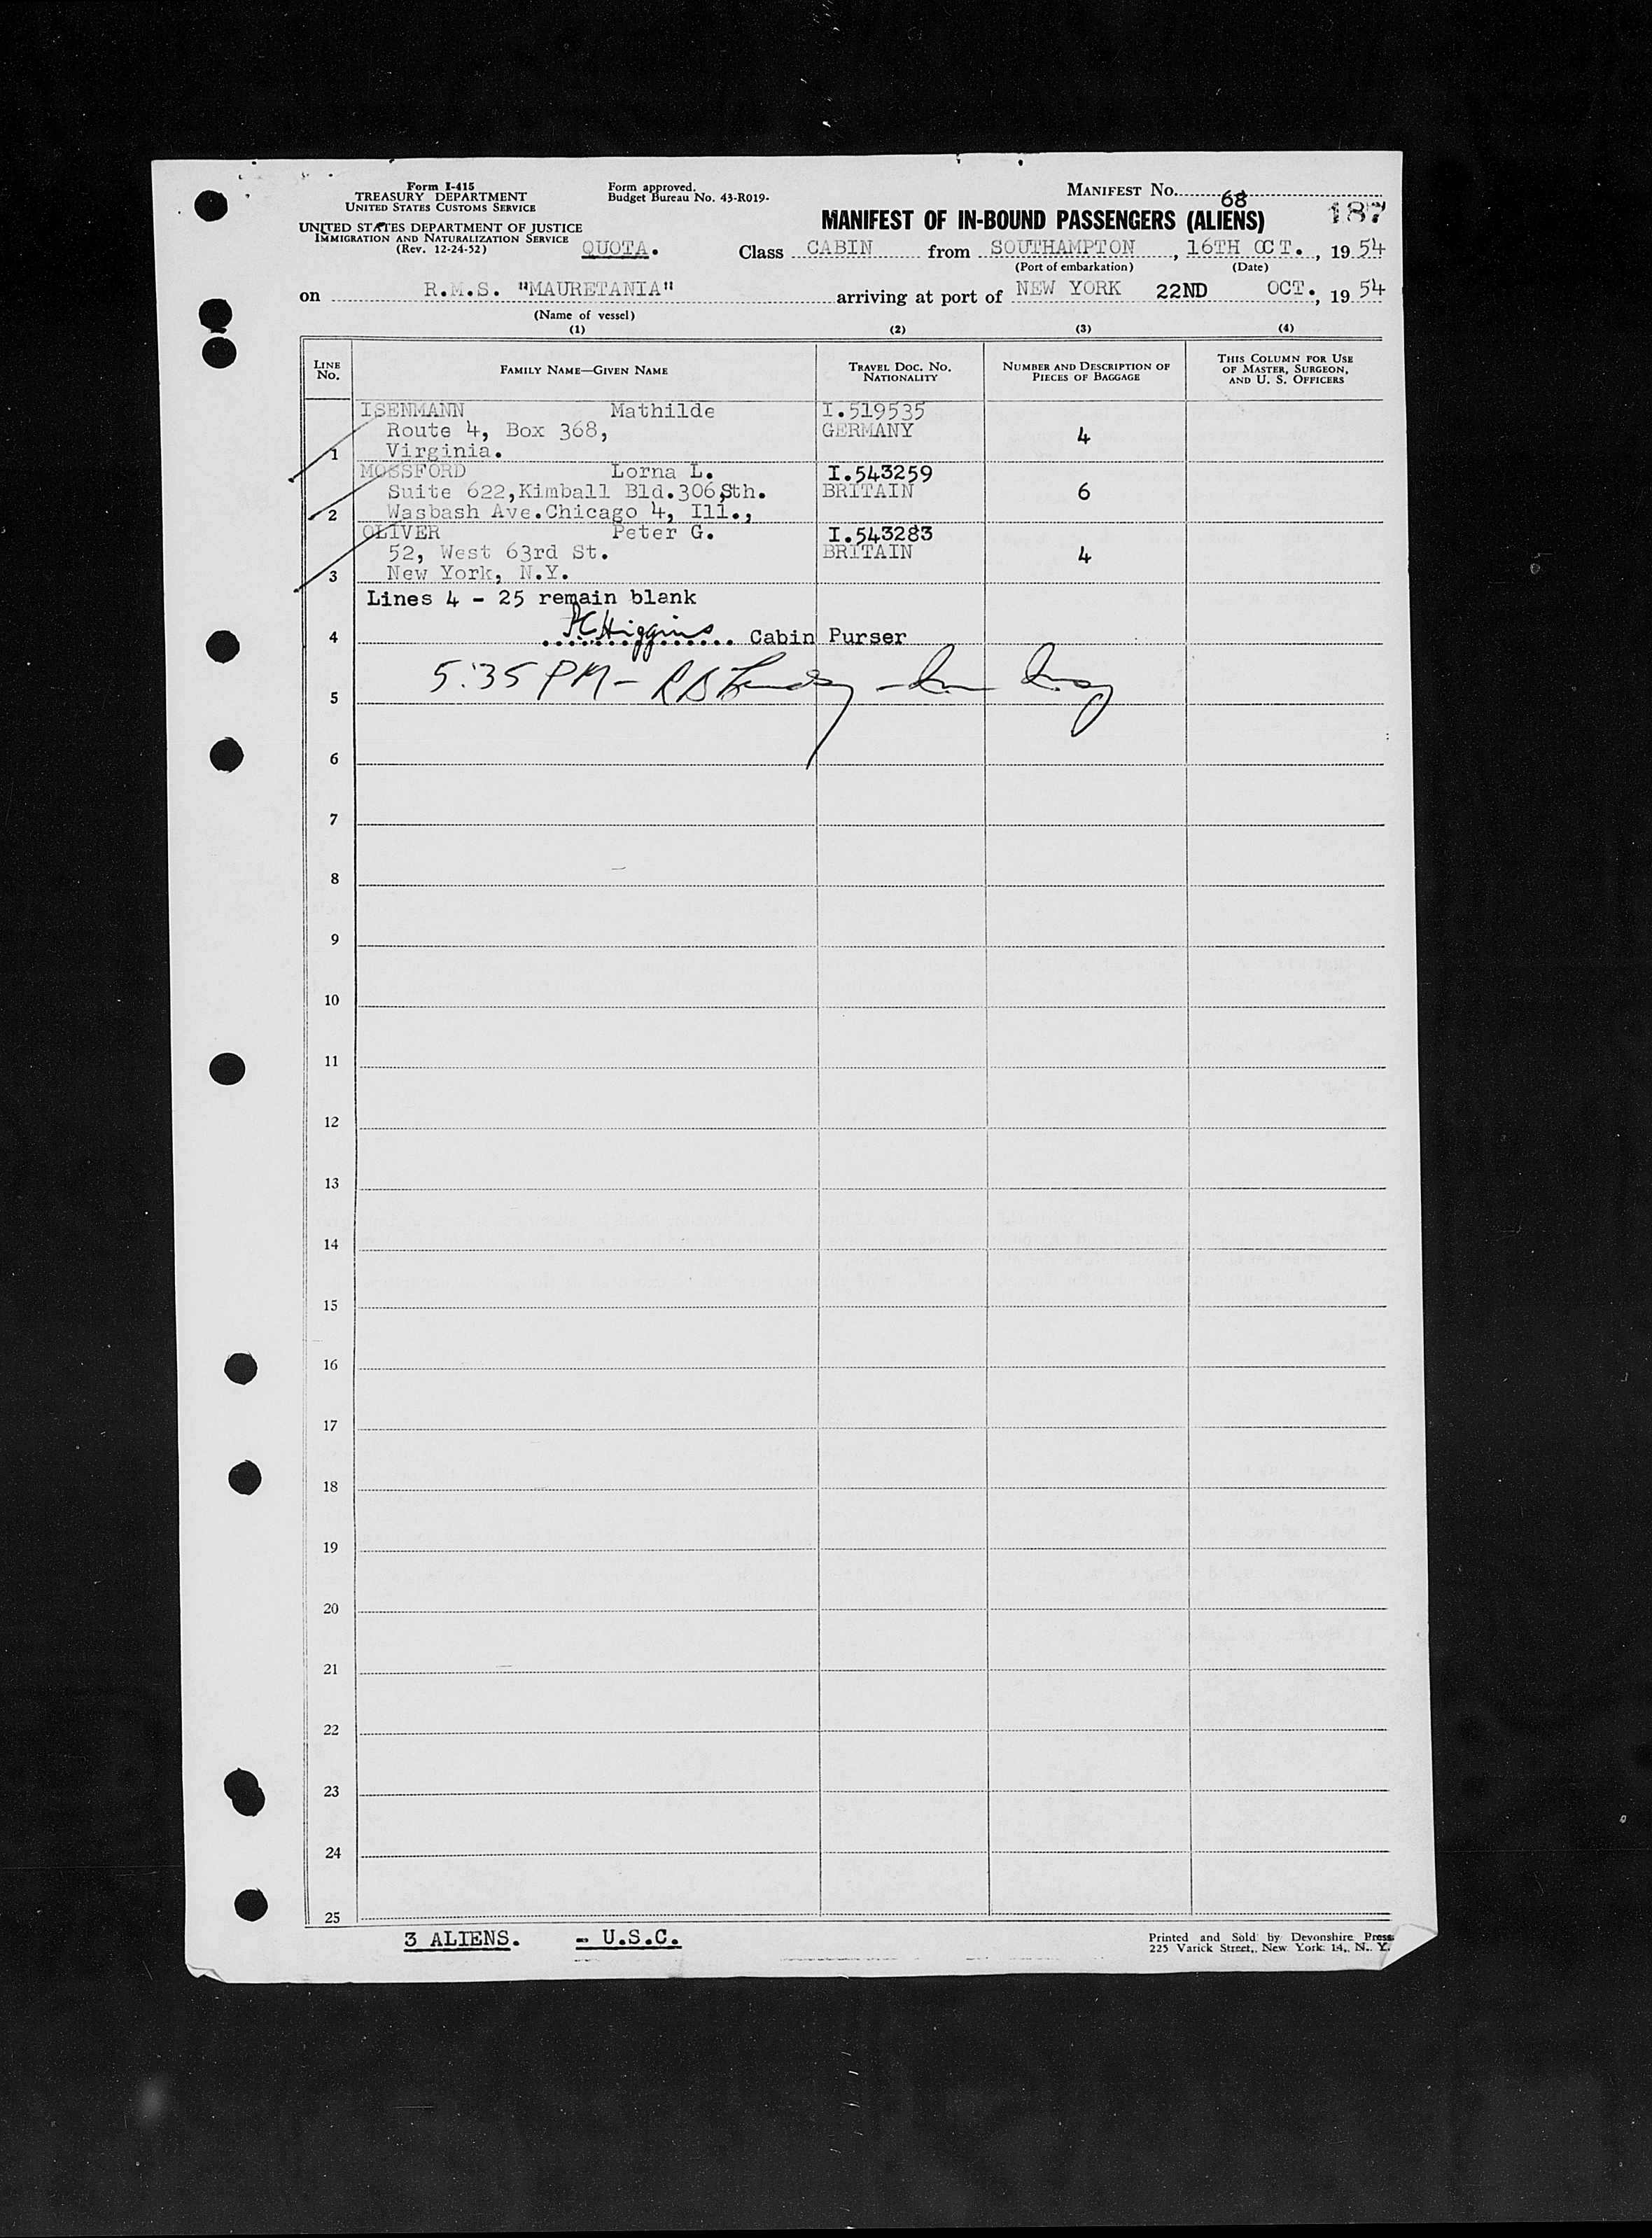 Form I-415
TREASURY DEPARTMENT
UNITED STATES CUSTOMS SERVICE
UNITED STATES DEPARTMENT OF JUSTICE
IMMIGRATION AND NATURALIZATION SERVICE
(Rev. 12-24-52)
Form approved.
Budget Bureau No. 43-R019-
MANIFEST No. 68
187
MANIFEST OF IN-BOUND PASSENGERS (ALIENS)
QUOTA. Class CABIN from SOUTHAMPTON, 16TH OCT., 1954
(Port of embarkation) (Date)
on R.M.S. "MAURETANIA" arriving at port of NEW YORK 22ND OCT., 1954
(Name of vessel)
(1) (2) (3) (4)
LINE No. FAMILY NAME—GIVEN NAME TRAVEL DOC. No. NATIONALITY NUMBER AND DESCRIPTION OF PIECES OF BAGGAGE THIS COLUMN FOR USE OF MASTER, SURGEON, AND U. S. OFFICERS
ISENMANN Mathilde I.519535
Route 4, Box 368, GERMANY 4
1 Virginia.
MOSSFORD Lorna L. I.543259
Suite 622,Kimball Bld.306,Sth. BRITAIN 6
2 Wasbash Ave.Chicago 4, Ill.,
OLIVER Peter G. I.543283
52, West 63rd St. BRITAIN 4
3 New York, N.Y.
Lines 4 - 25 remain blank
4 Higgins Cabin Purser
5:35 PM -
5
6
7
8
9
10
11
12
13
14
15
16
17
18
19
20
21
22
23
24
25
3 ALIENS. - U.S.C.
Printed and Sold by Devonshire Press
225 Varick Street, New York 14, N. Y.